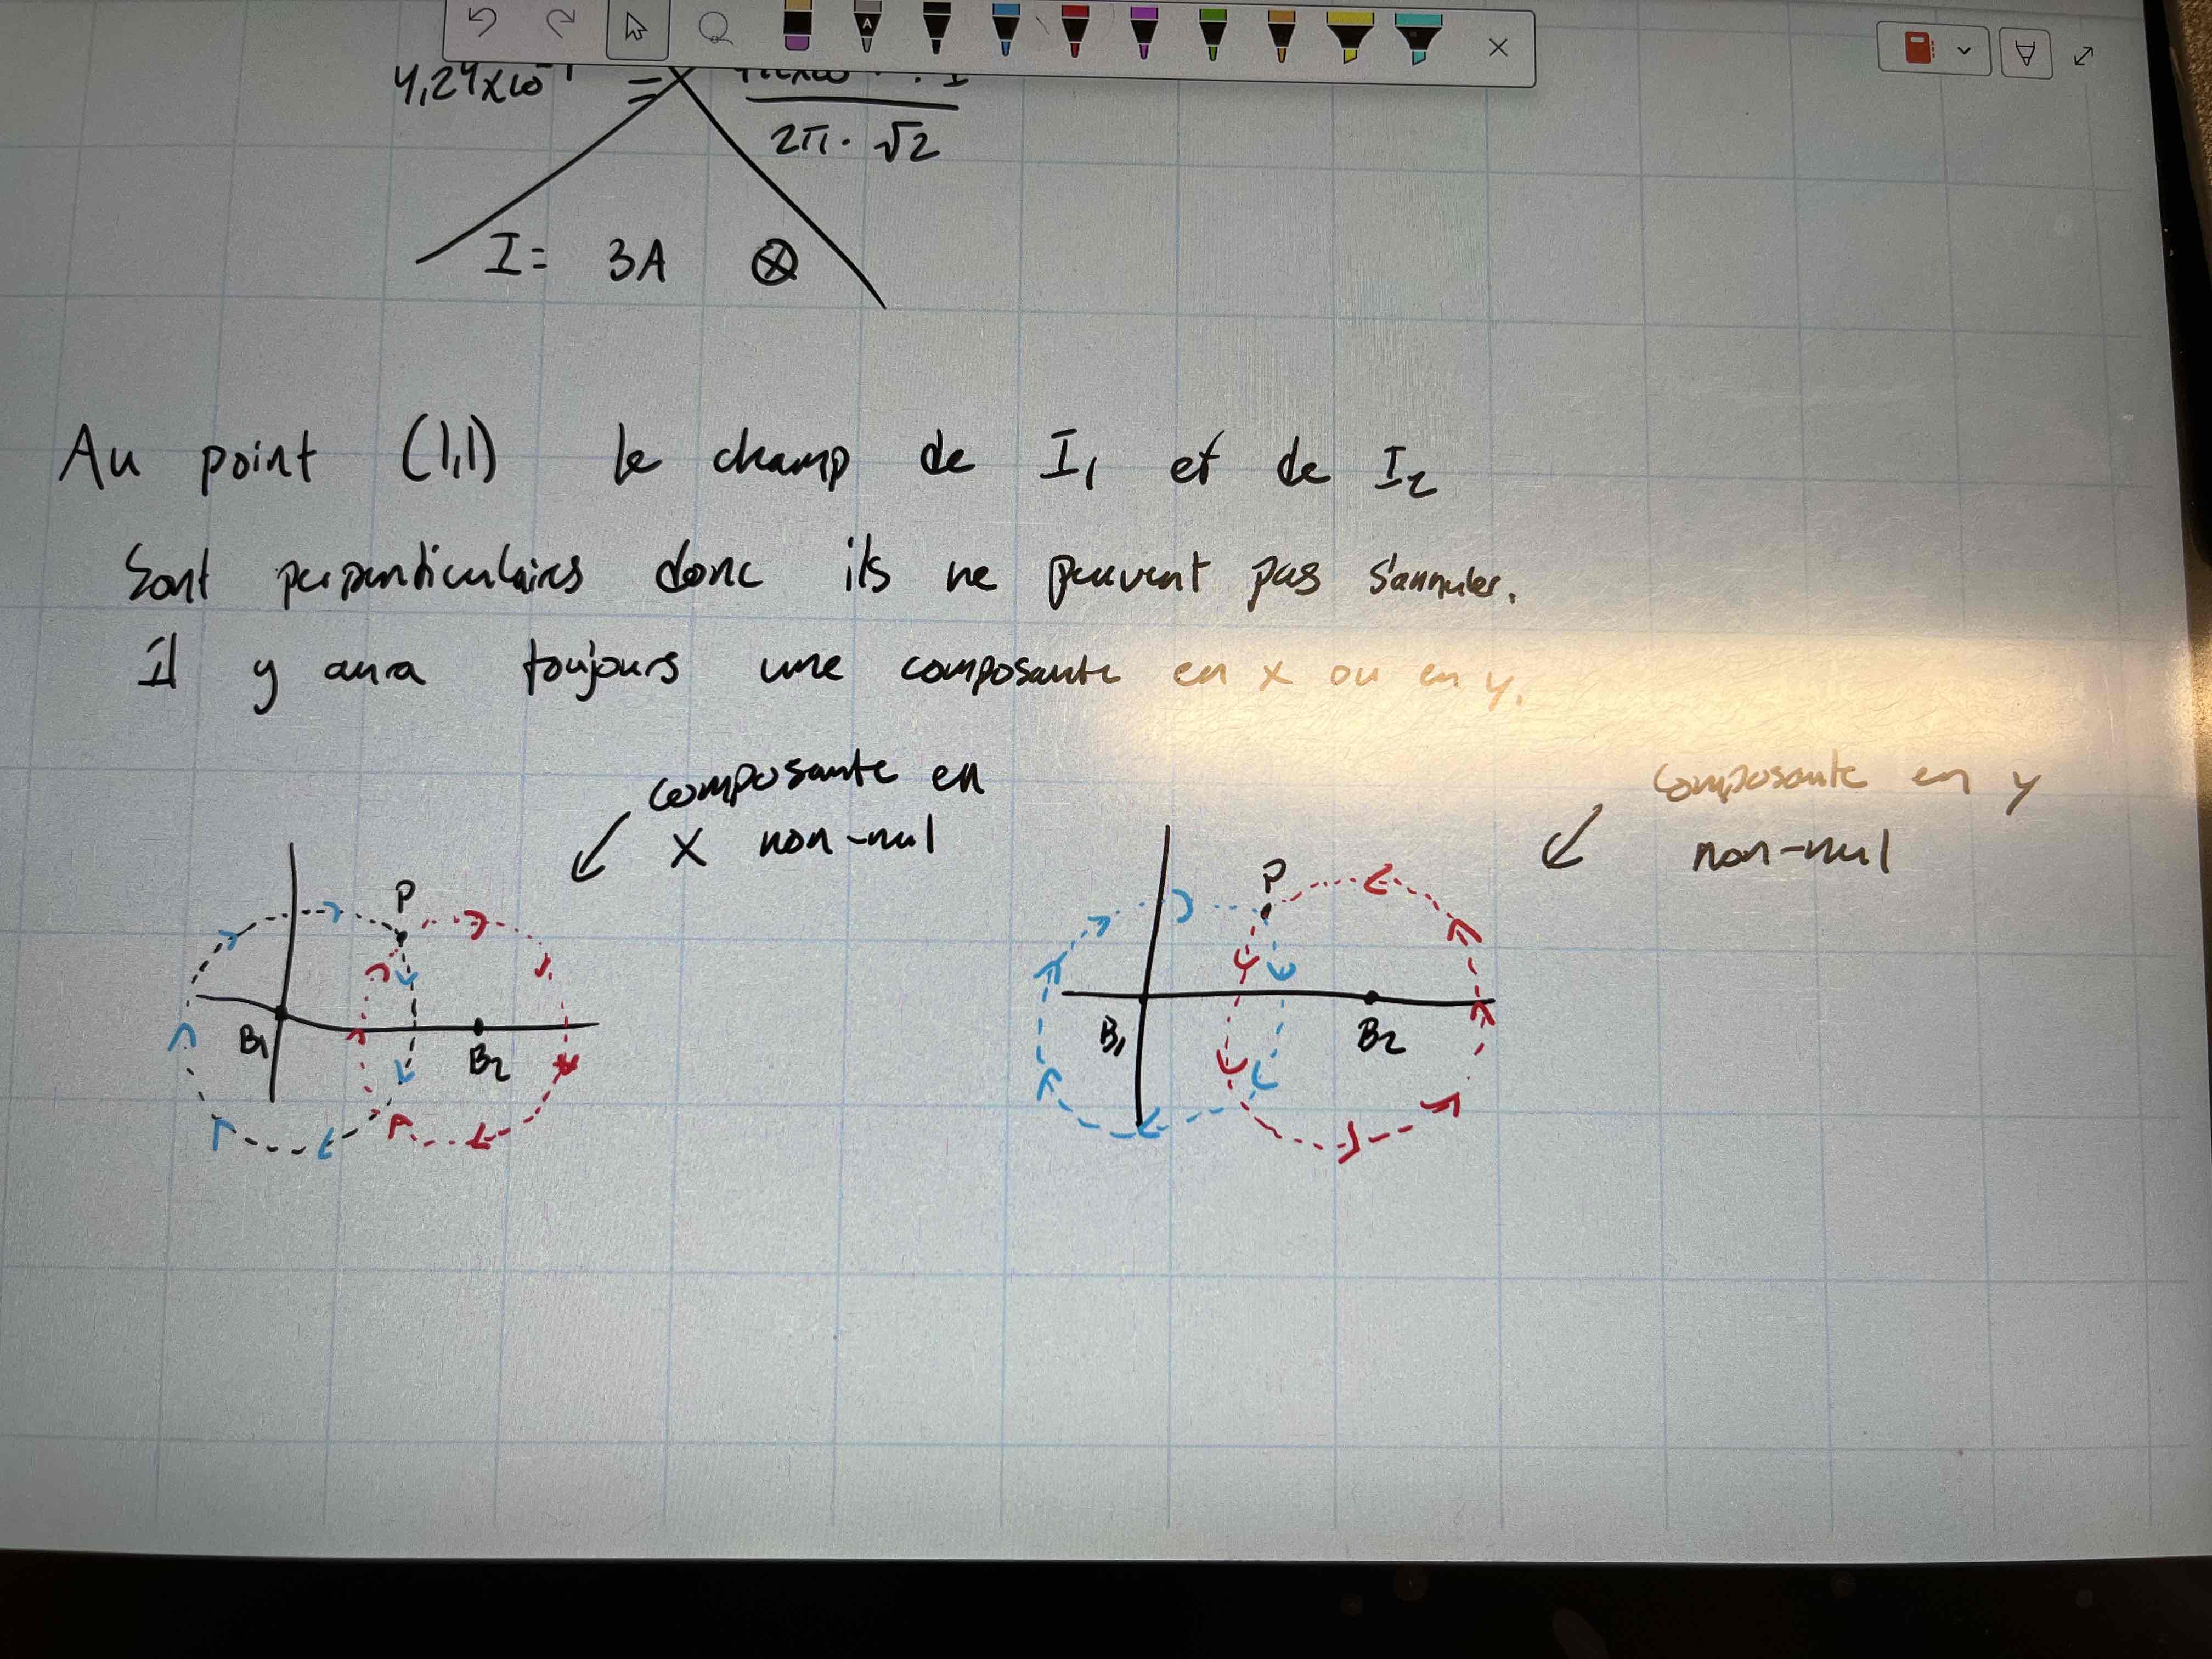 4,24x10
=
2π · √2
I = 3A ⊗
Au point (1,1) le champ de I₁ et de I₂
Sont perpendiculaires donc ils ne peuvent pas s'annuler.
Il y aura toujours une composante en x ou en y.
composante en
x non-nul
composante en y
non-nul
P
B₁
B₂
P
B₁
B₂